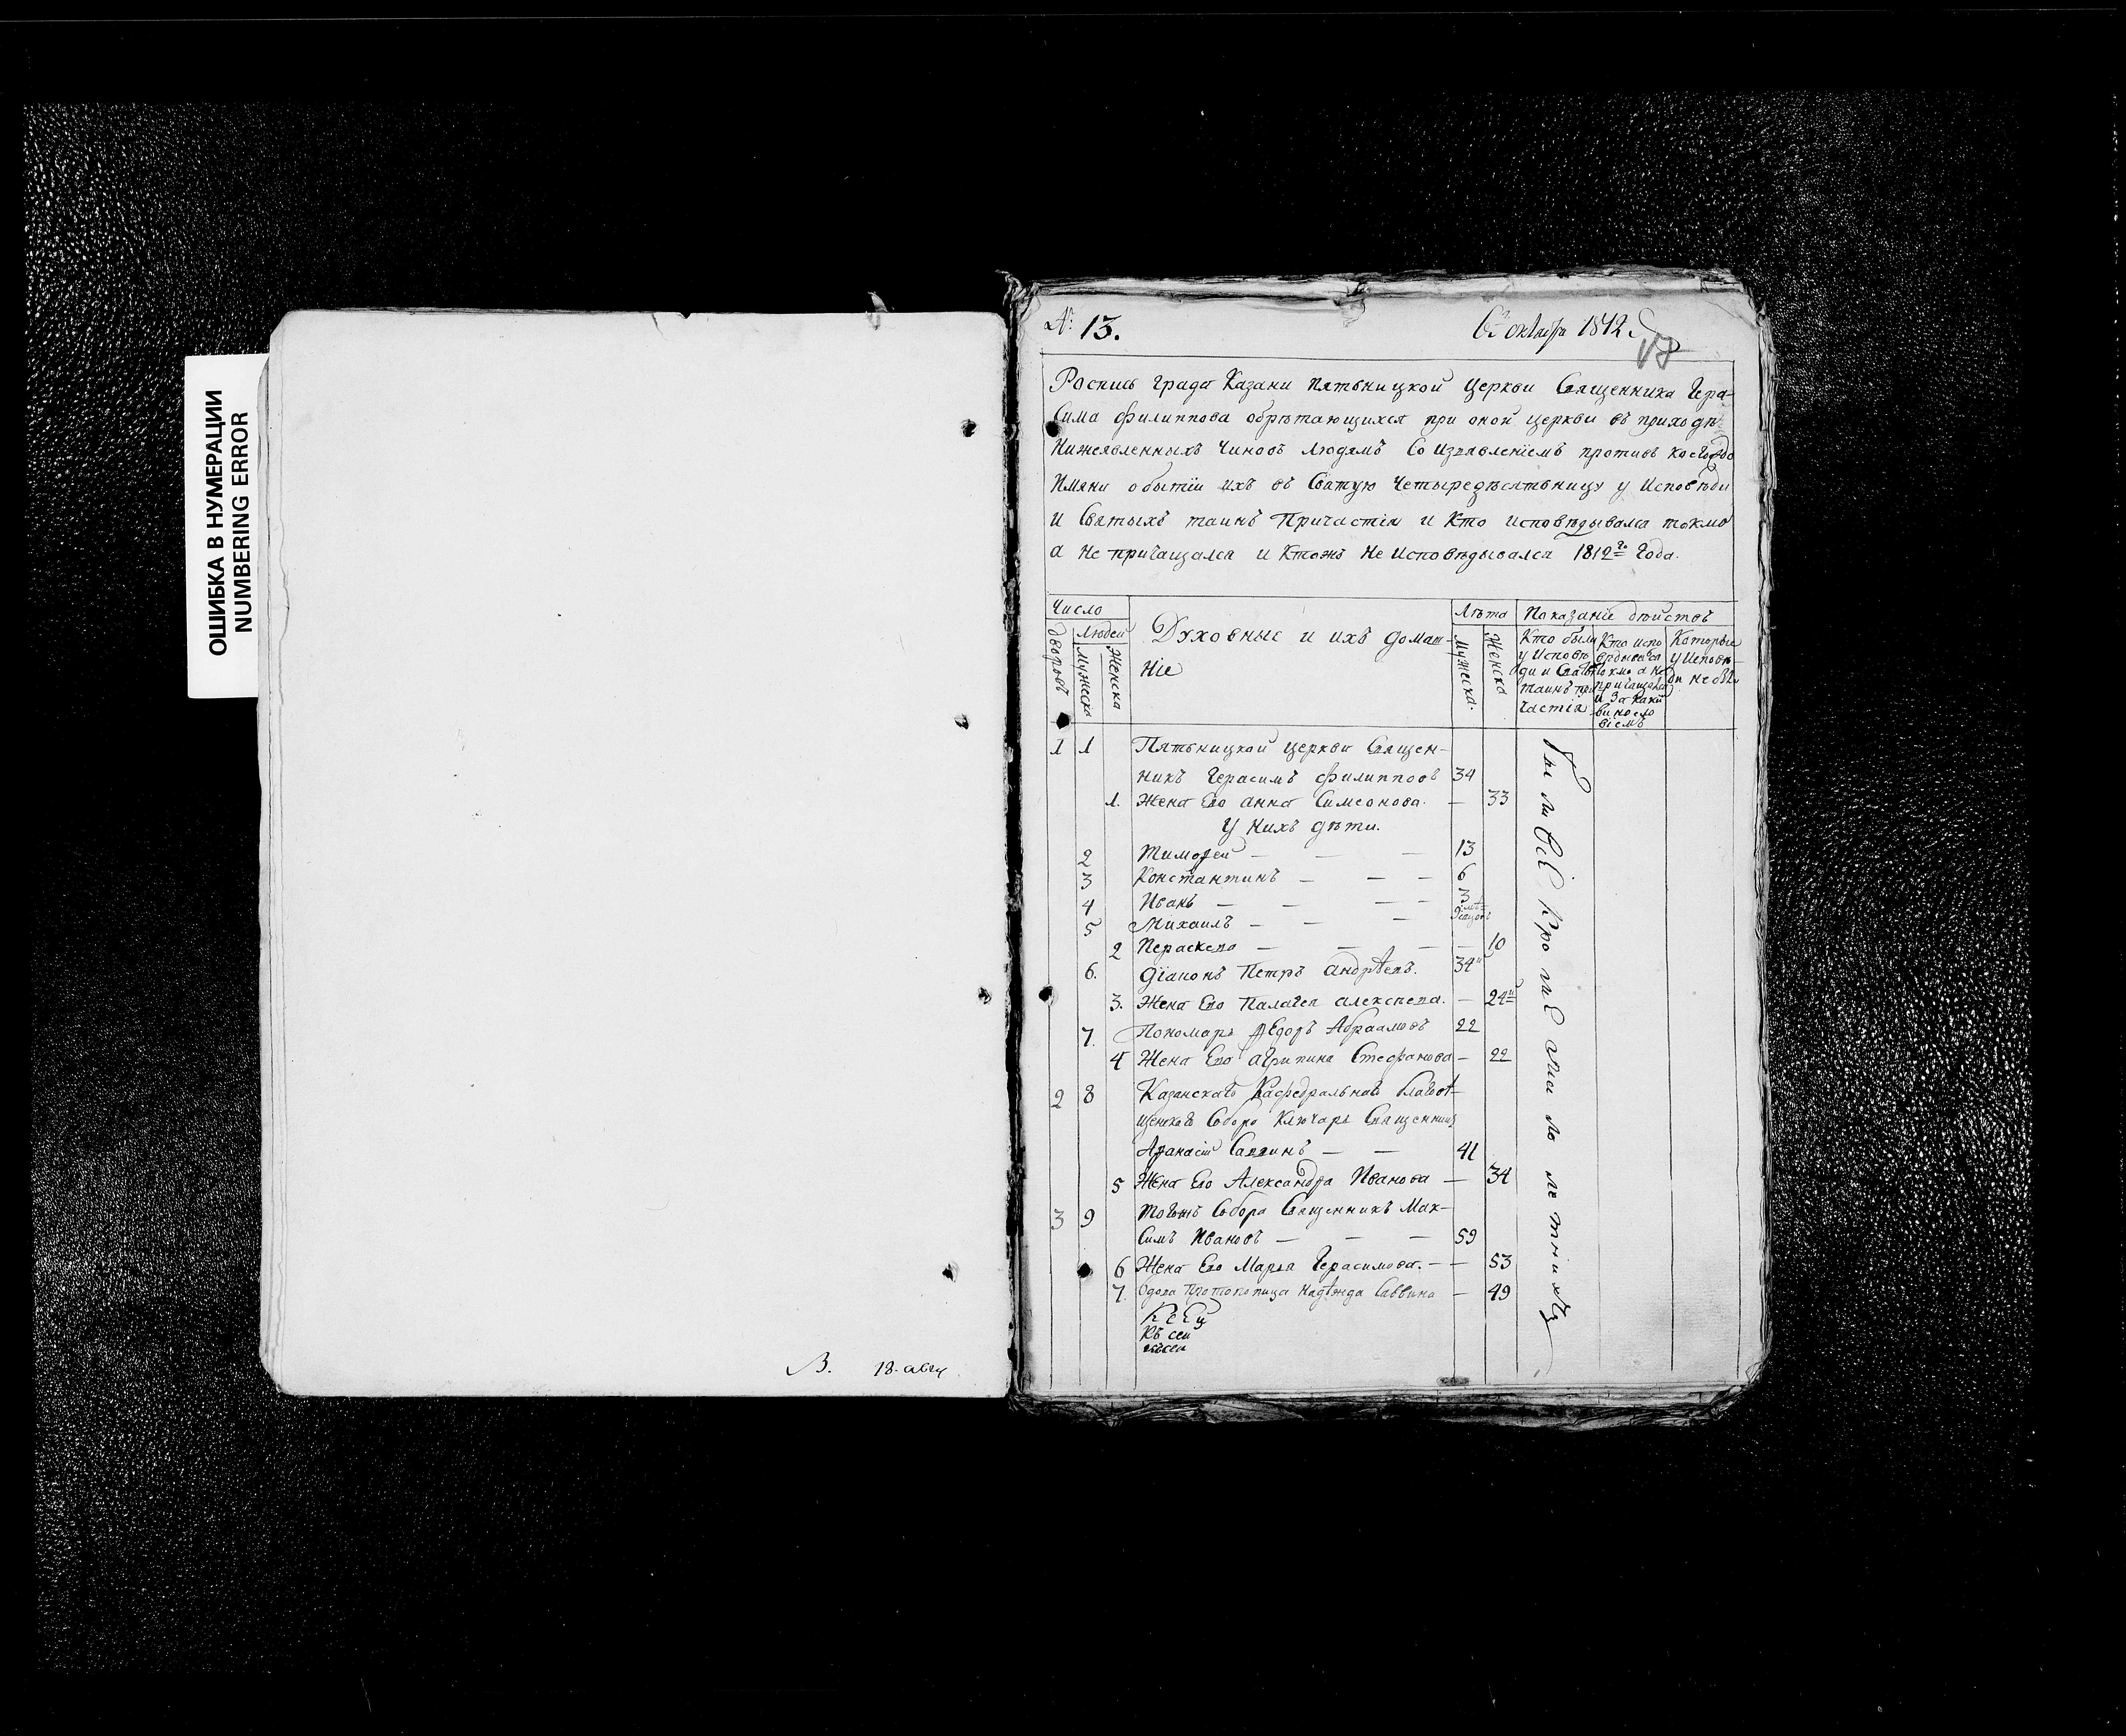 ОШИБКА В НУМЕРАЦИИ
NUMBERING ERROR
18. авгу
№ 13.
октября 1812
17
Роспись града Казани Пятьницкой церкви Священника Гера-
сима Филиппова обрѣтающихся при оной церкви въ приходѣ
Нижеявленныхъ чиновъ людямъ Со изъявленіемъ противъ коегождо
Имяни о бытіи ихъ въ Святую Четыредѣсятьницу у Исповѣди
и Святыхъ таинъ Причастія и Кто исповѣдывался токмо
а Не причащался и Ктожъ Не Исповѣдывался 1812го Года.
Число
Лѣта
Показаніе дѣйствъ
дворовъ
Людей
Мужеска
Женска
Духовные и ихъ домаш-
ніе
Мужеска.
Женска
Кто были
у Исповѣ
ди и Святыхъ
таинъ при
частія
Кто испо
вѣдывался
токмо а Не
причащался
и За каки
Которые
у Исповѣ-
ди не были
1 1 Пятьницкой церкви Священ-
никъ Герасимъ Филипповъ 34
1. Жена Его Анна Симеонова. — 33
У Нихъ дѣти.
2 Тимофей — — — 13
3 Константинъ — — — 6
4 Иванъ — — — 3
5 Михаилъ — — —
2 Параскева — — — — 10
6. Діаконъ Петръ Андрѣевъ. 34
3. Жена Его Палагея Алексѣева. — 24
7. Пономарь Ѳедоръ Абрамовъ 22
4 Жена Его Агрипина Стефанова — 22
2 8 Казанскаго Кафедральнаго Благовѣ-
щенскаго Собора Ключарь Священникъ
Афанасій Саввинъ — — 41
5 Жена Его Александра Иванова — 34
3 9 Тогожъ Собора Священникъ Мак-
симъ Ивановъ — — — 59
6 Жена Его Марья Герасимова. — — 53
7. Вдова Протопопица Надѣжда Саввина — 49
Были всѣ кромѣ малолетнихъ